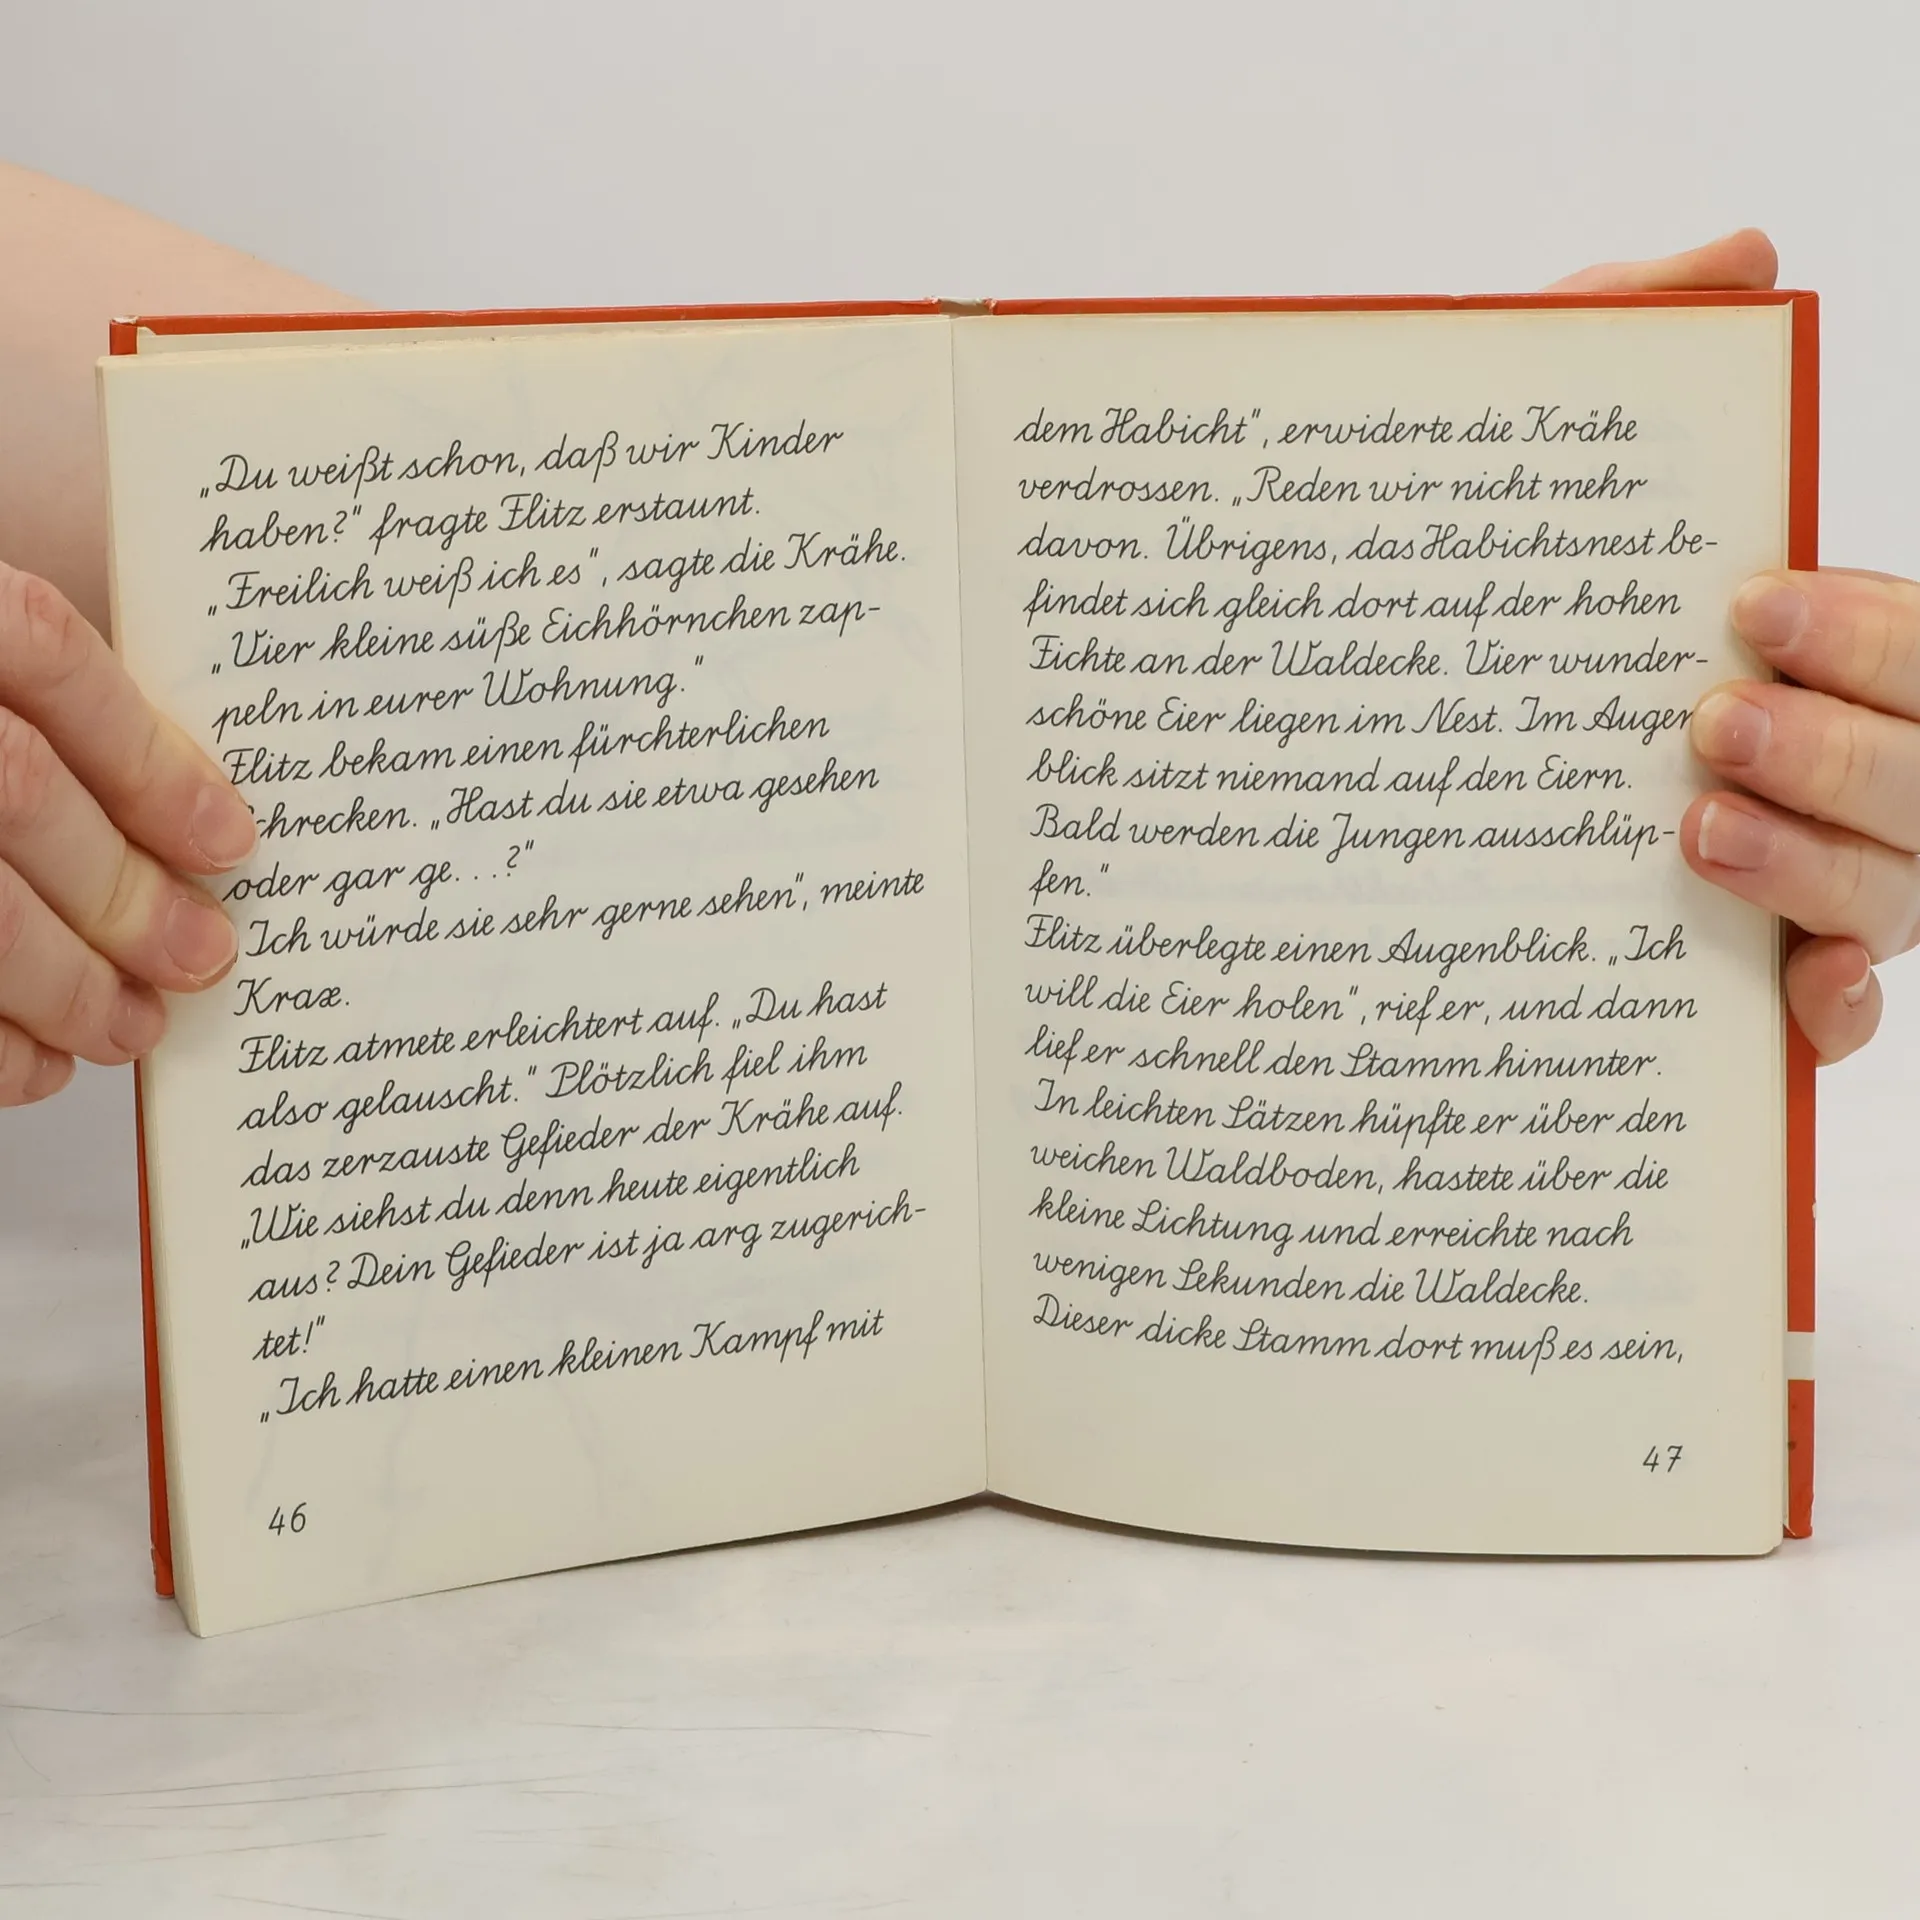 „Du weißt schon, daß wir Kinder
haben?" fragte Flitz erstaunt.
„Freilich weiß ich es", sagte die Krähe.
„Vier kleine süße Eichhörnchen zap-
peln in eurer Wohnung."
Flitz bekam einen fürchterlichen
Schrecken. „Hast du sie etwa gesehen
oder gar ge. . .?"
„Ich würde sie sehr gerne sehen", meinte
Krax.
Flitz atmete erleichtert auf. „Du hast
also gelauscht." Plötzlich fiel ihm
das zerzauste Gefieder der Krähe auf.
„Wie siehst du denn heute eigentlich
aus? Dein Gefieder ist ja arg zugerich-
tet!"
„Ich hatte einen kleinen Kampf mit
46
dem Habicht", erwiderte die Krähe
verdrossen. „Reden wir nicht mehr
davon. Übrigens, das Habichtsnest be-
findet sich gleich dort auf der hohen
Fichte an der Waldecke. Vier wunder-
schöne Eier liegen im Nest. Im Augen
blick sitzt niemand auf den Eiern.
Bald werden die Jungen ausschlüp-
fen."
Flitz überlegte einen Augenblick. „Ich
will die Eier holen", rief er, und dann
lief er schnell den Stamm hinunter.
In leichten Sätzen hüpfte er über den
weichen Waldboden, hastete über die
kleine Lichtung und erreichte nach
wenigen Sekunden die Waldecke.
Dieser dicke Stamm dort muß es sein,
47